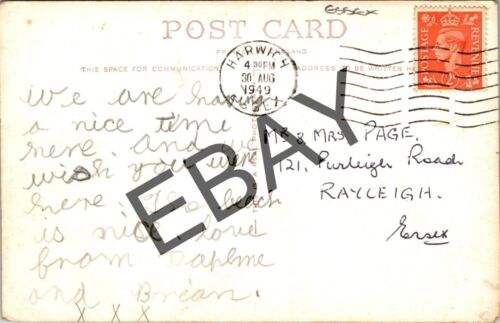 Essex
POST CARD
THIS SPACE FOR COMMUNICATION ADDRESS TO BE WRITTEN HERE
HARWICH
4 30PM
30 AUG
1949
ESSEX
POSTAGE
REVENUE
2D
We are having
a nice time
here and we
wish you were
here The beach
is nice love
from Daphne
and Brian.
X X X
MR & MRS PAGE.
121, Purleigh Road
RAYLEIGH.
Essex
EBAY